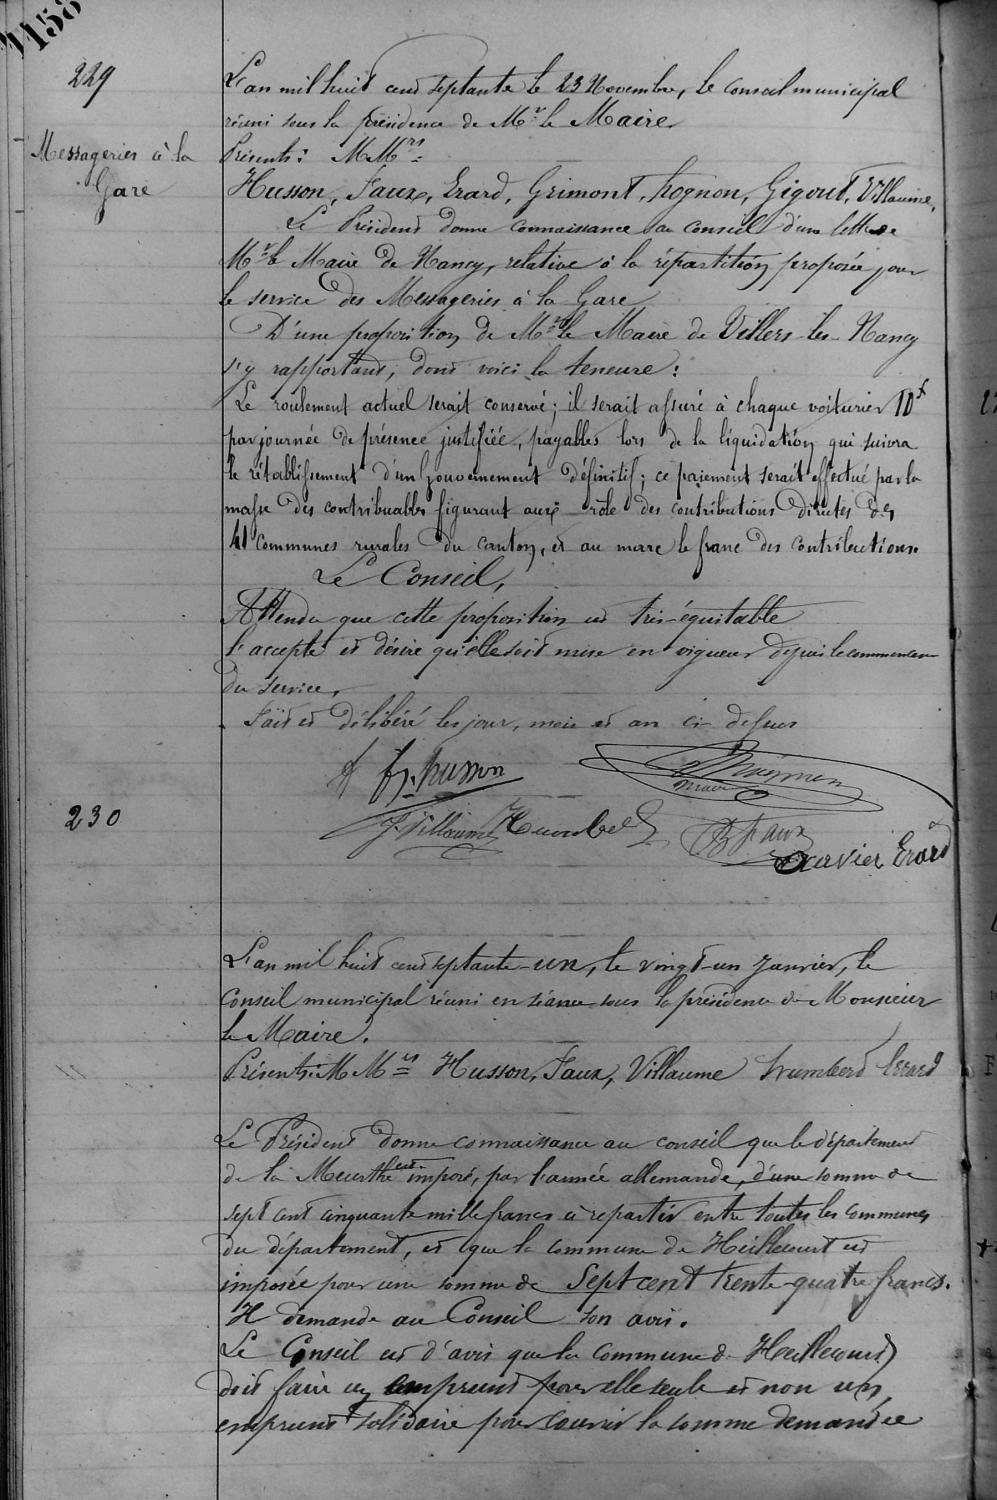 1158
229
L'an mil huit cent septante le 23 Novembre, le Conseil municipal
réuni sous la présidence de Mr le Maire.
Messageries à la
Gare
Présents: MMrs
Husson, Faux, Erard, Grimont, Rognon, Gigout, Villaume,
Le Président donne connaissance au Conseil d'une lettre
Mr le Maire de Nancy, relative à la répartition proposée pour
le service des Messageries à la Gare
D'une proposition de Mr le Maire de Villers-les-Nancy
s'y rapportant, dont voici la teneure:
Le roulement actuel serait conservé; il serait assuré à chaque voiturier 10f
par journée de présence justifiée, payables lors de la liquidation qui suivra
le rétablissement d'un Gouvernement définitif; ce paiement serait effectué par la
masse des contribuables figurant aux rôle des contributions directes des
41 communes rurales du canton, et au marc le franc des contributions.
Le Conseil,
Attendu que cette proposition est très-équitable
l'accepte et désire qu'elle soit mise en vigueur depuis le commencem
du service,
Fait et délibéré les jour, mois et an ci-dessus
fs. husson
230
J. Villaume Humbert
B Faux
Xavier Erard
L'an mil huit cent septante-un, le vingt-un Janvier, le
Conseil municipal réuni en séance sous la présidence de Monsieur
le Maire.
Présents: MMrs Husson, Faux, Villaume Humbert Erard
Le Président donne connaissance au conseil que le département
de la Meurthe est imposé, par l'armée allemande, d'une somme de
sept cent cinquante mille francs à repartir entre toutes les communes
du département, et que la commune de Heillecourt est
imposée pour une somme de Sept cent trente-quatre francs.
Il demande au Conseil son avis.
Le Conseil est d'avis que la commune d Heillecourt
doit faire un emprunt pour elle seule et non un
emprunt solidaire pour couvrir la somme demandée